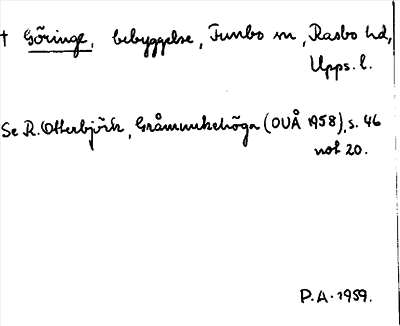 † Göringe, bebyggelse, Funbo sn, Rasbo hd,
Upps. l.
Se R. Otterbjörk, Gråmunkehöga (OUÅ 1958), s. 46
not 20.
P.A. 1959.